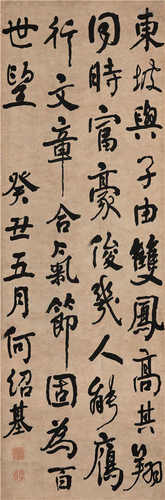 東坡與子由雙鳳高其翔
同時富豪俊幾人能膺
行文章合氣節固為百
世望 癸丑五月何紹基